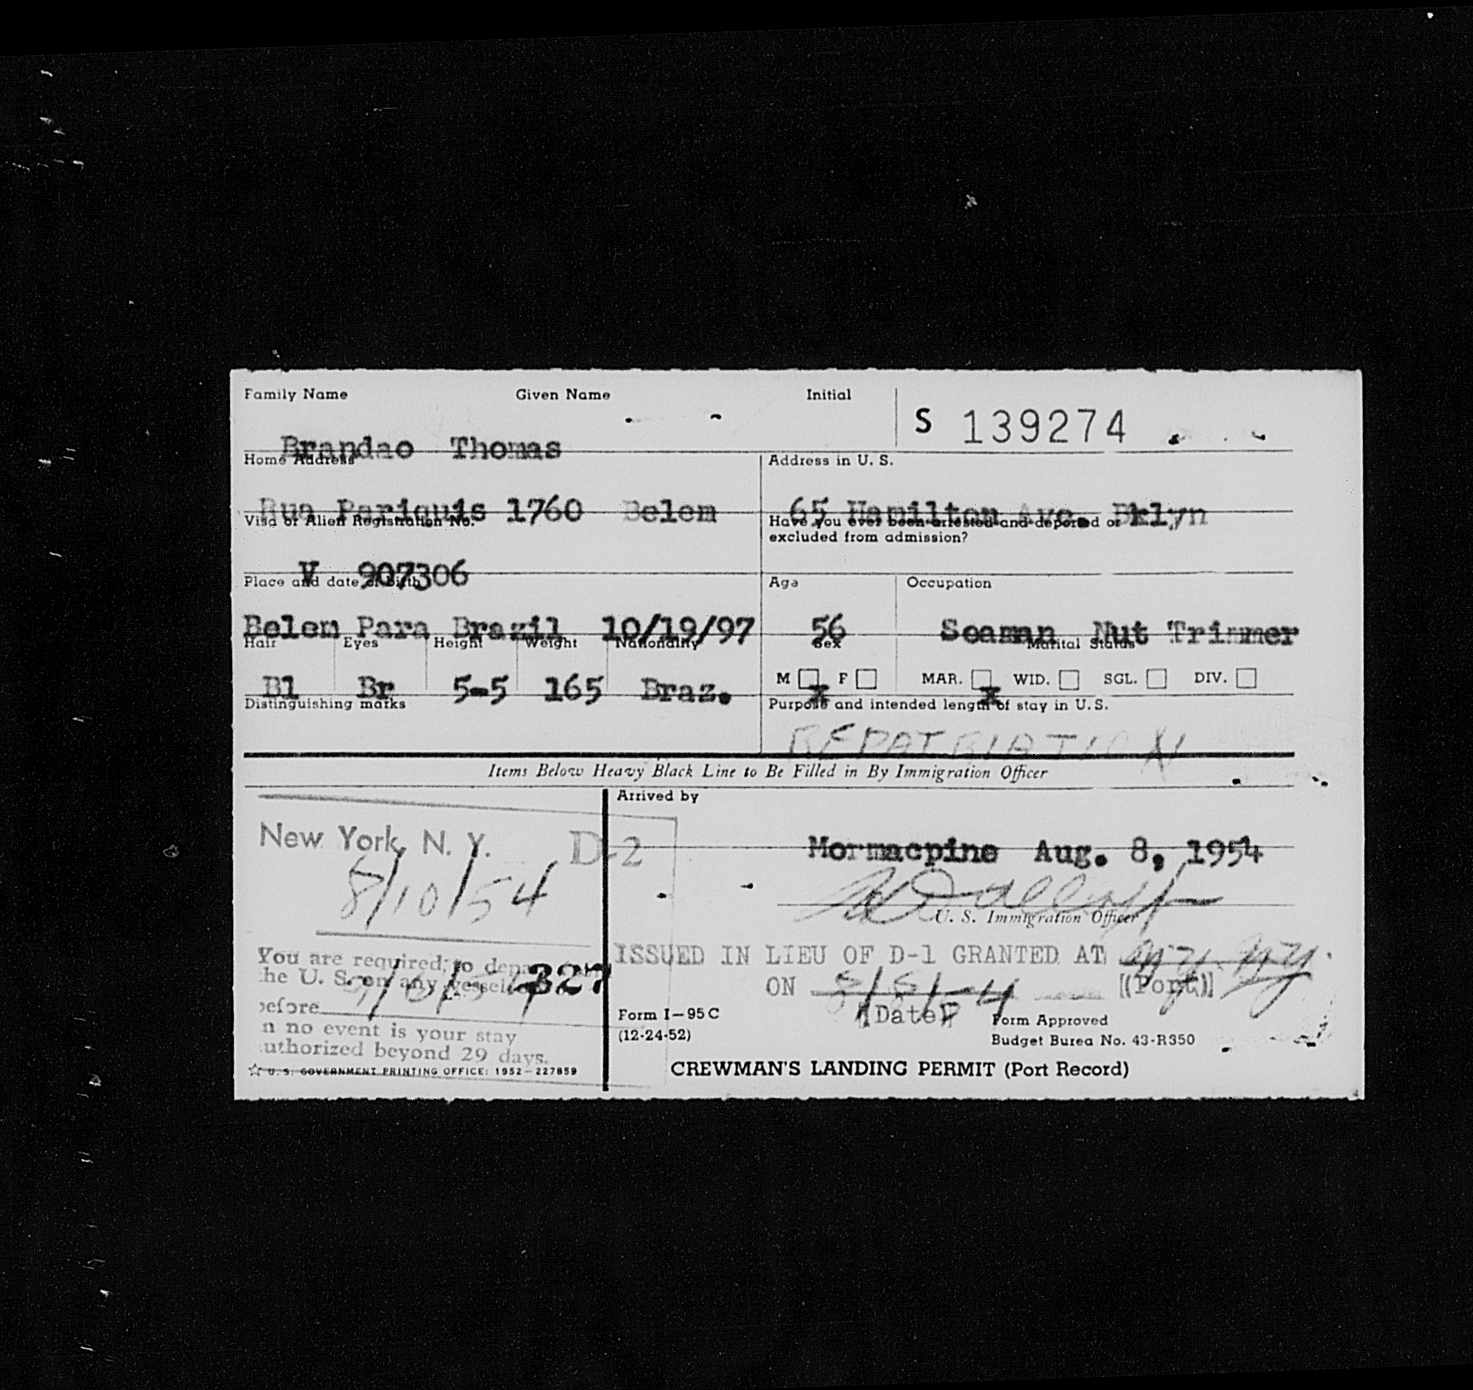 Family Name Given Name Initial
S 139274
Brandao Thomas
Home Address Address in U. S.
Rua Pariquis 1760 Belem 65 Hamilton Ave. Bklyn
Visa or Alien Registration No. Have you ever been arrested and deported or
excluded from admission?
V 907306
Place and date of birth Age Occupation
Belem Para Brazil 10/19/97 56 Seaman Nut Trimmer
Hair Eyes Height Weight Nationality Sex Marital Status
Bl Br 5-5 165 Braz. M F MAR. WID. SGL. DIV.
x x
Distinguishing marks Purpose and intended length of stay in U.S.
REPATRIATION
Items Below Heavy Black Line to Be Filled in By Immigration Officer
Arrived by
New York, N. Y. D-2 Mormacpine Aug. 8, 1954
8/10/54
U. S. Immigration Officer
You are required to depart
the U. S. on any vessel 327
before
n no event is your stay
uthorized beyond 29 days.
ISSUED IN LIEU OF D-1 GRANTED AT NY. NY.
ON 8/8/54 (Port)
(Date)
Form I-95C
(12-24-52)
Form Approved
Budget Burea No. 43-R350
☆ U. S. GOVERNMENT PRINTING OFFICE: 1952-227859
CREWMAN'S LANDING PERMIT (Port Record)